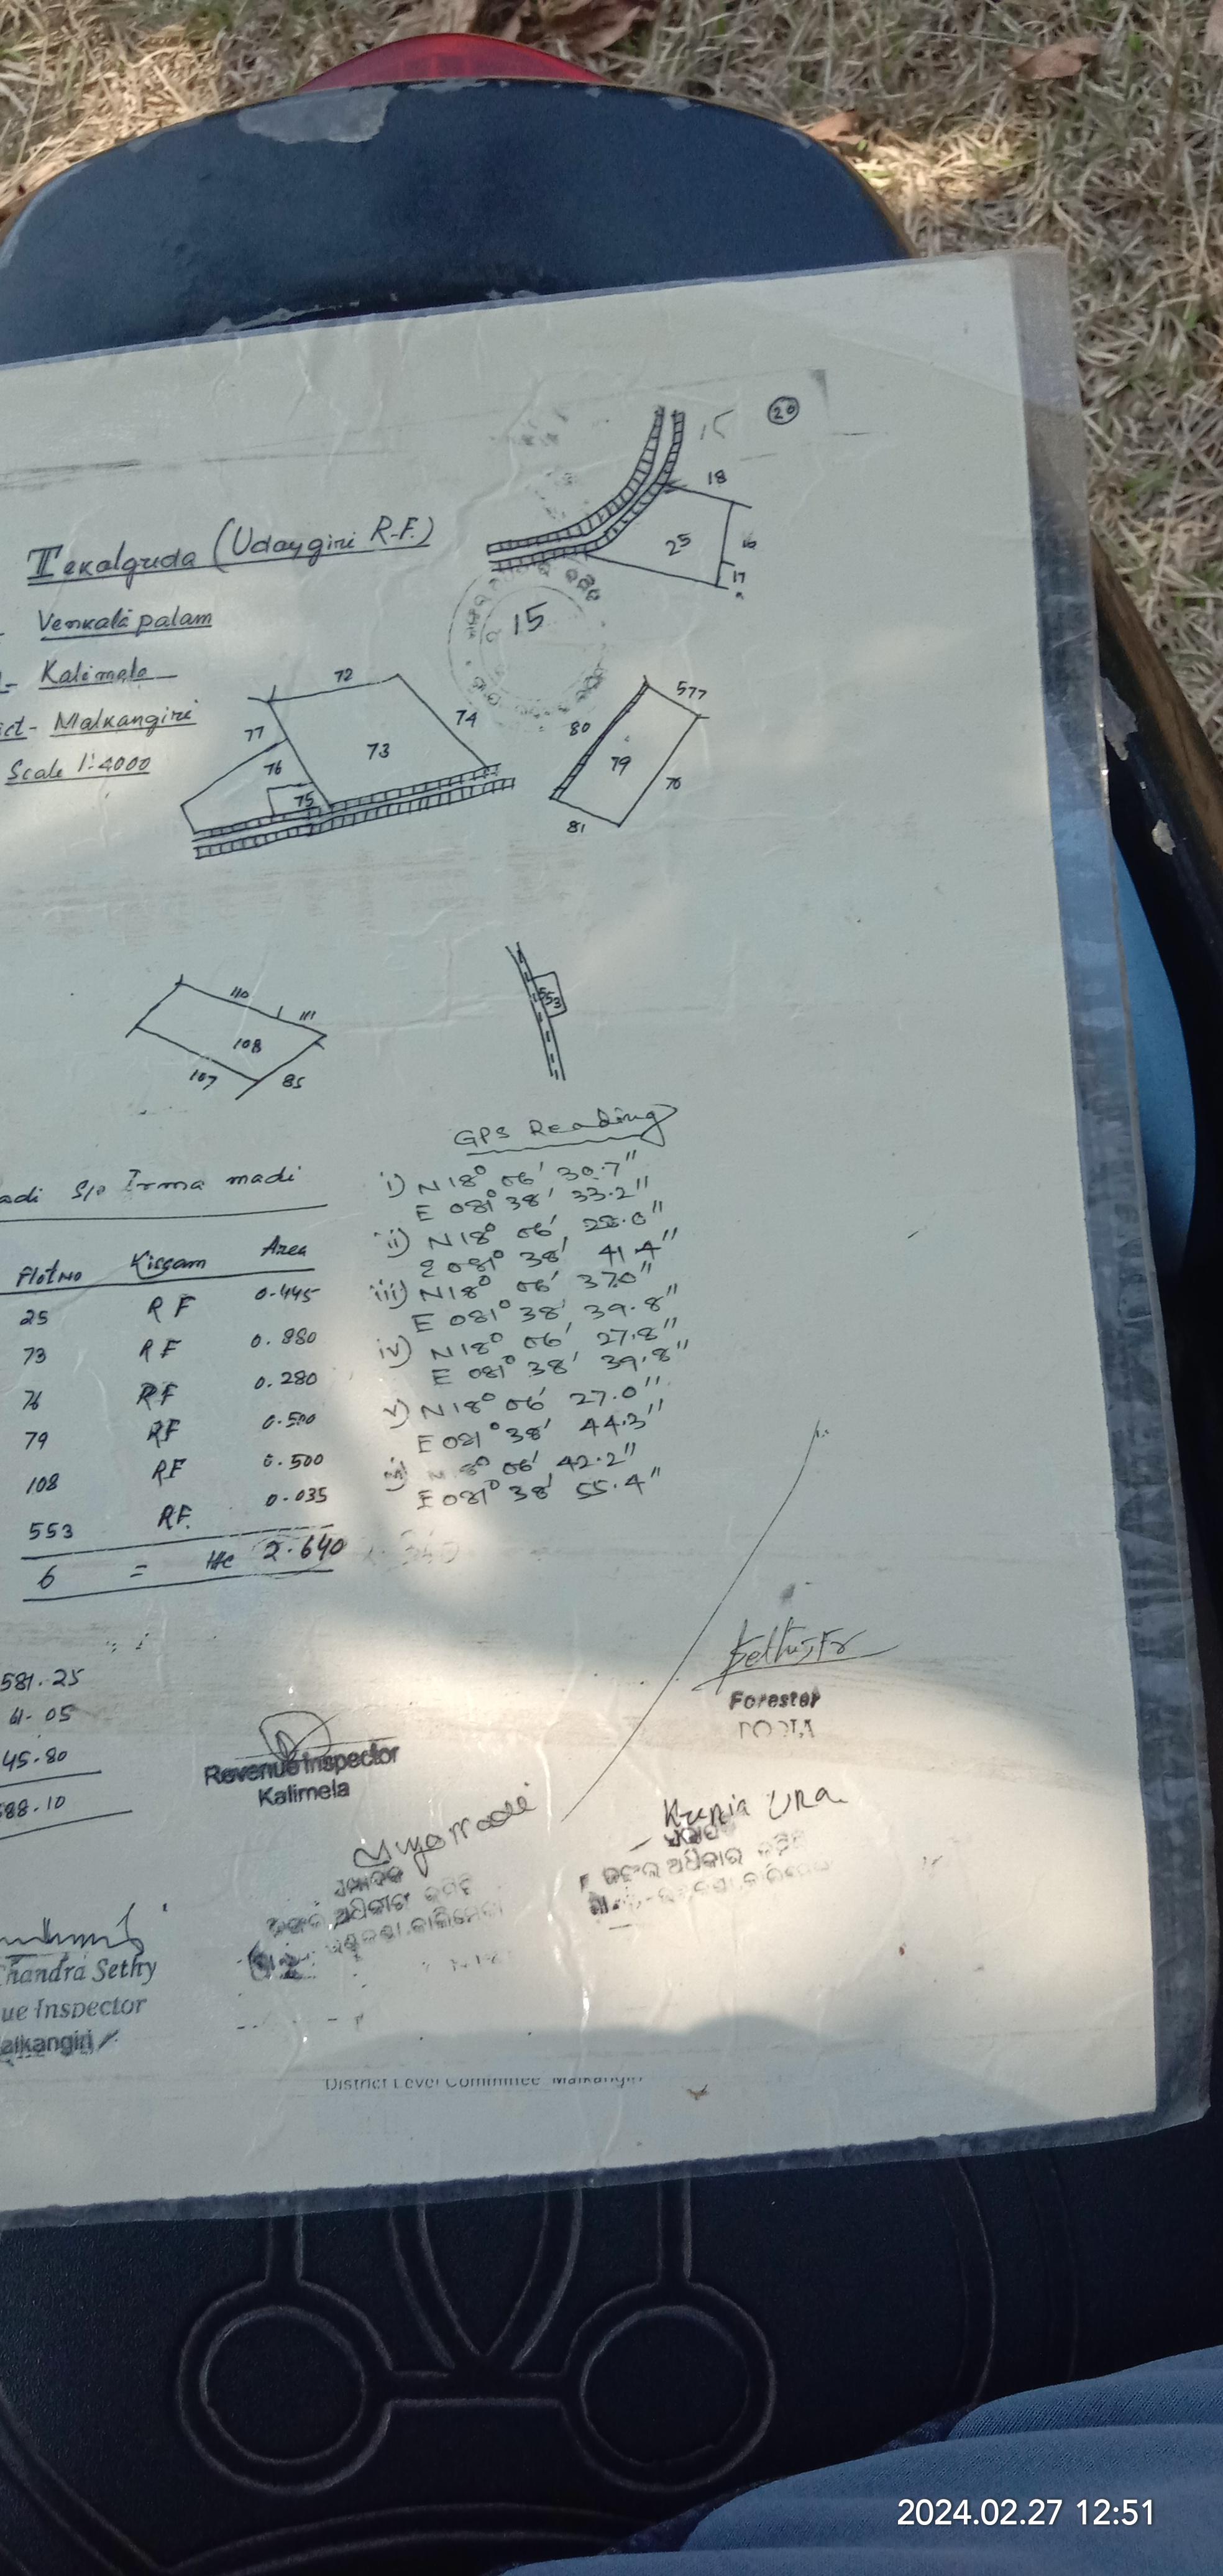 20
15
18
25
16
17
Tekalguda (Udaygiri R.F.)
15
Venkatapalam
Kalimela
ct- Malkangiri
Scale 1:4000
72
77
74
73
76
75
577
80
79
78
81
110
111
108
107
85
553
GPS Reading
adi S/o Irma madi
i) N 18° 06' 30.7"
E 081° 38' 33.2"
ii) N 18° 06', 28.0"
E 081° 38', 41.4"
iii) N 18° 06' 37.0"
E 081° 38' 39.8"
iv) N 18° 06', 27.8"
E 081° 38' 39.8"
v) N 18° 06' 27.0"
E 081° 38' 44.3"
8° 06' 42.2"
E 081° 38' 55.4"
Plot No Kissam Area
25 RF 0.445
73 RF 0.880
76 RF 0.280
79 RF 0.500
108 RF 0.500
553 RF. 0.035
6 = Hc 2.640
581.25
4.05
45.80
588.10
Forester
Revenue Inspector
Kalimela
ଜଙ୍ଗଲ ଅଧିକାର
ଅଧିକାର
Chandra Sethy
ue Inspector
alkangiri
District Level Committee Malkangiri
2024.02.27 12:51